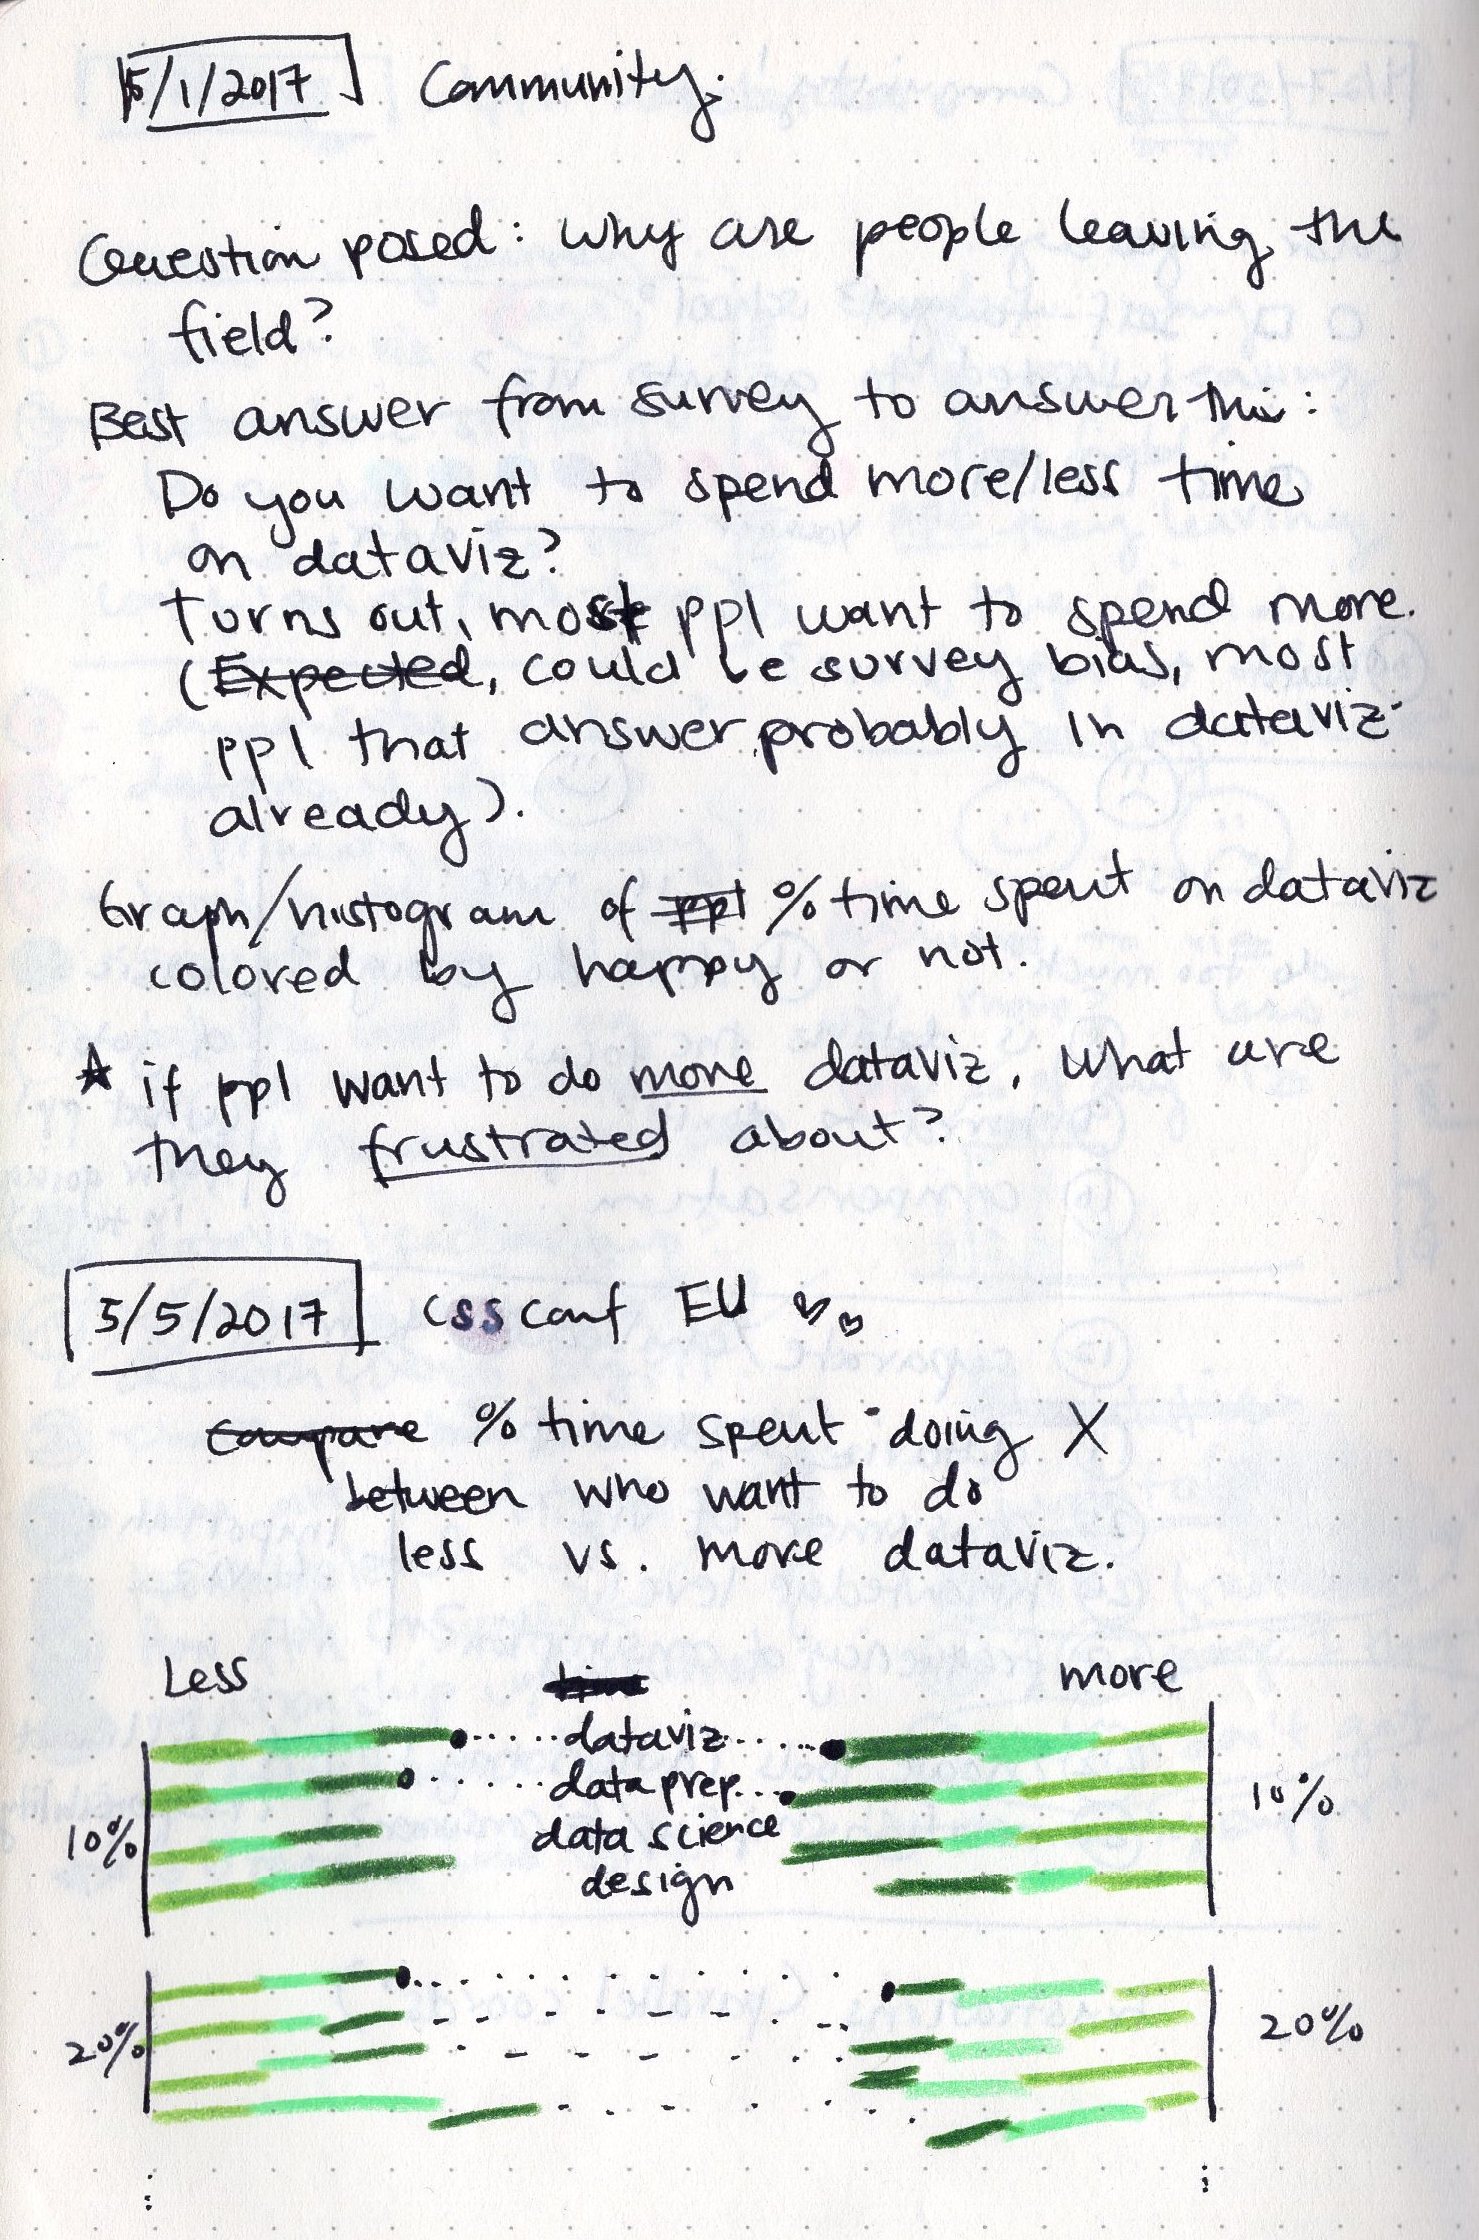 5/1/2017 Community:
Question posed: why are people leaving the
field?
Best answer from survey to answer this:
Do you want to spend more/less time
on dataviz?
Turns out, most ppl want to spend more.
(Expected, could be survey bias, most
ppl that answer probably in dataviz
already).
Graph/histogram of ppl % time spent on dataviz
colored by happy or not.
★ if ppl want to do more dataviz, what are
they frustrated about?
5/5/2017 CSSconf EU ♡♡
Compare % time spent doing X
between who want to do
less vs. more dataviz.
Less time more
dataviz
data prep
data science
design
10% 10%
20% 20%